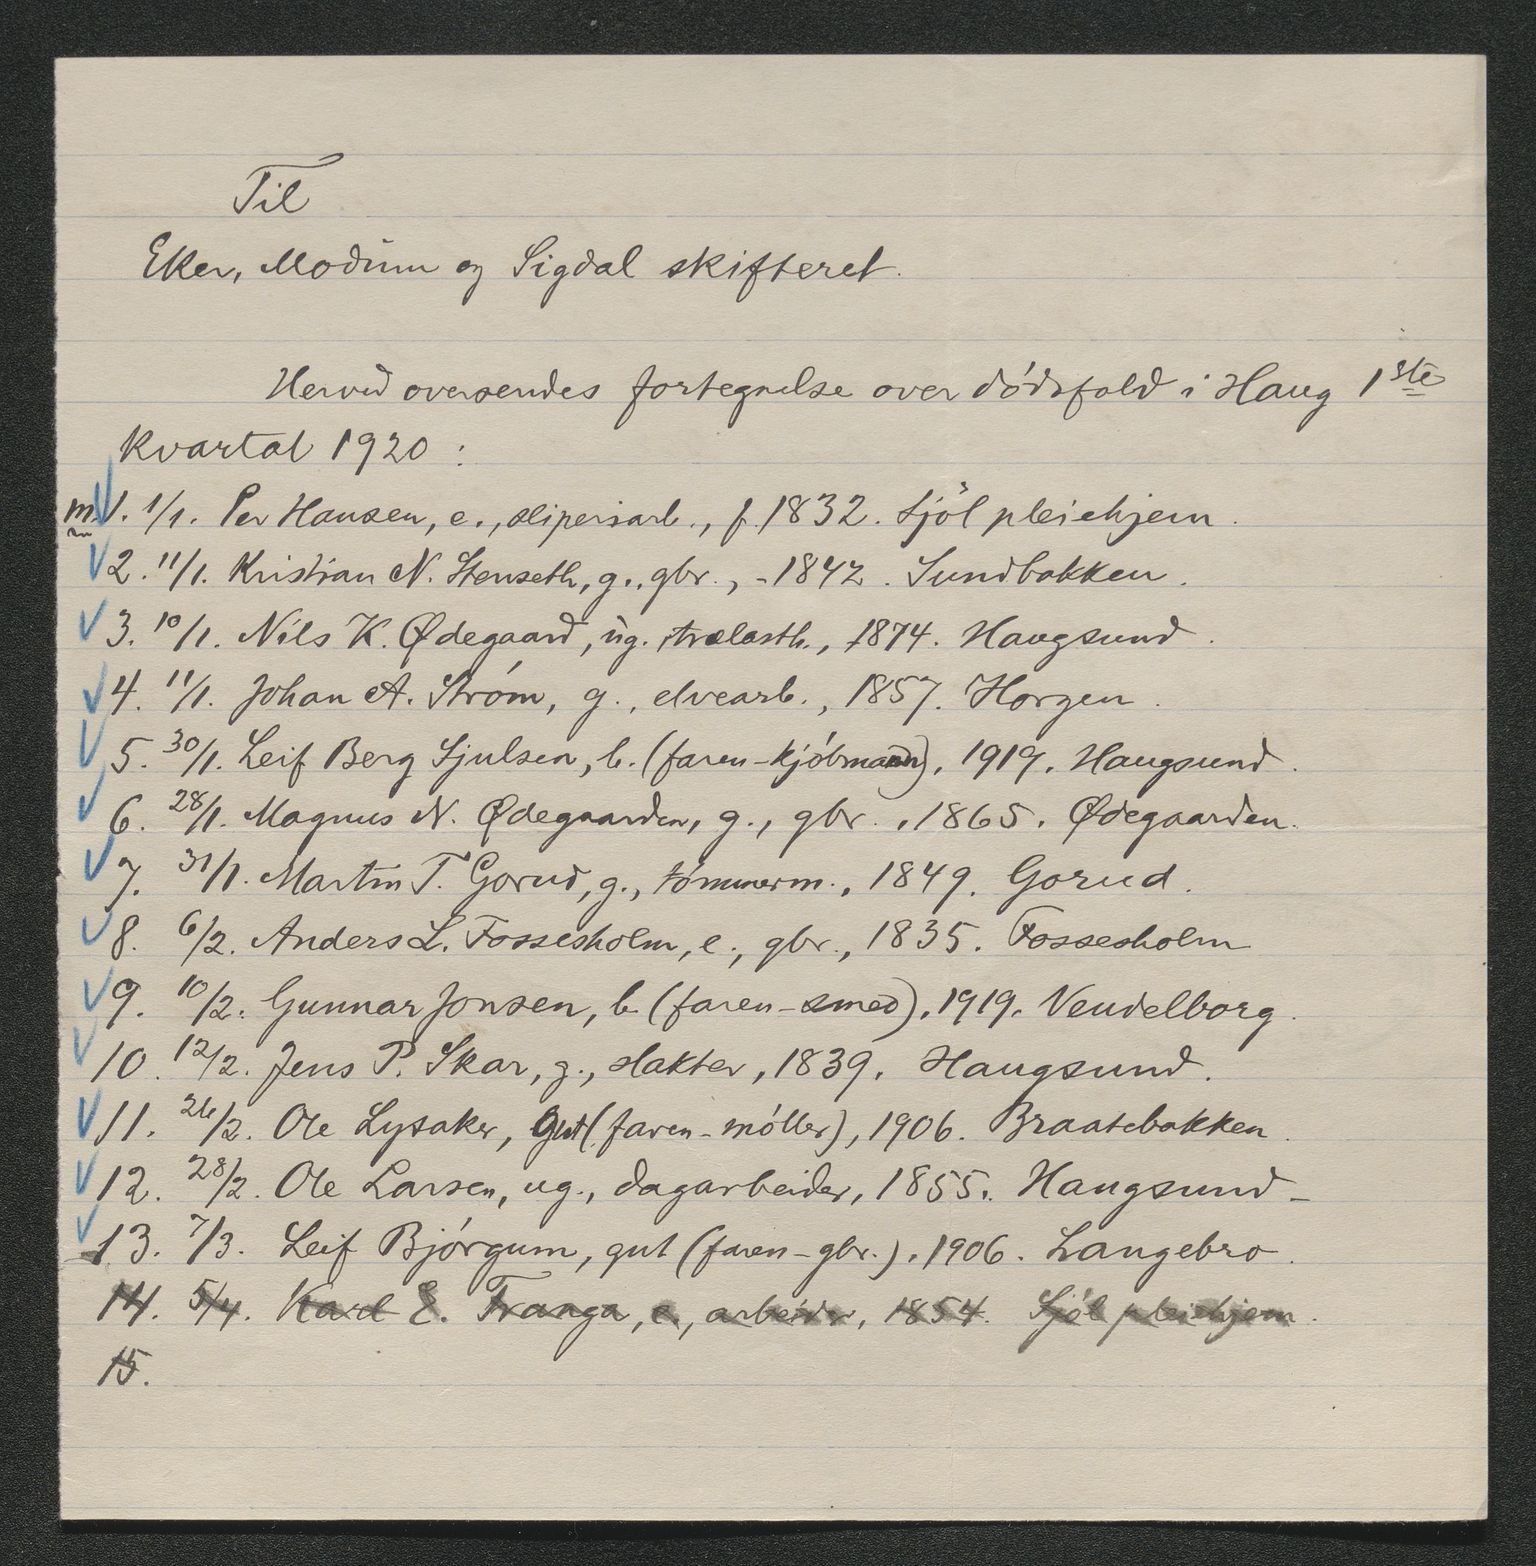 Til
Eker, Modum og Sigdal skifteret.
Herved oversendes fortegnelse over dódsfald i Haug 1ste
kvartal 1920 :
1. 1/1. Per Hansen, e., sliperiarb., f. 1832. Sjöl pleiehjem.
2. 11/1. Kristian N. Stenseth, g., gbr., - 1842. Sundbakken.
3. 10/1. Nils K. Ødegaard, ug. trælasth., 1874. Haugsund.
4. 11/1. Johan A. Stróm, g., elvearb., 1857. Horgen.
5. 30/1. Leif Berg Sjulsen, b. (faren - kjóbmand), 1919. Haugsund.
6. 28/1. Magnus N. Ødegaarden, g., gbr., 1865. Ødegaarden.
7. 31/1. Martin T. Gorud, g., tómmerm., 1849. Gorud.
8. 6/2. Anders L. Fossesholm, e., gbr., 1835. Fossesholm
9. 10/2. Gunnar Jonsen, b. (faren - smed), 1919. Vendelborg.
10. 12/2. Jens P. Skar, g., slakter, 1839. Haugsund.
11. 26/2. Ole Lysaker, gut (faren - móller), 1906. Braatebakken.
12. 28/2. Ole Larsen, ug., dagarbeider, 1855. Haugsund -
13. 7/3. Leif Bjórgum, gut (faren - gbr.), 1906. Langebro.
14. 5/4. Karl E. Tranga, e., arbeider, 1854. Sjól pleiehjem.
15.